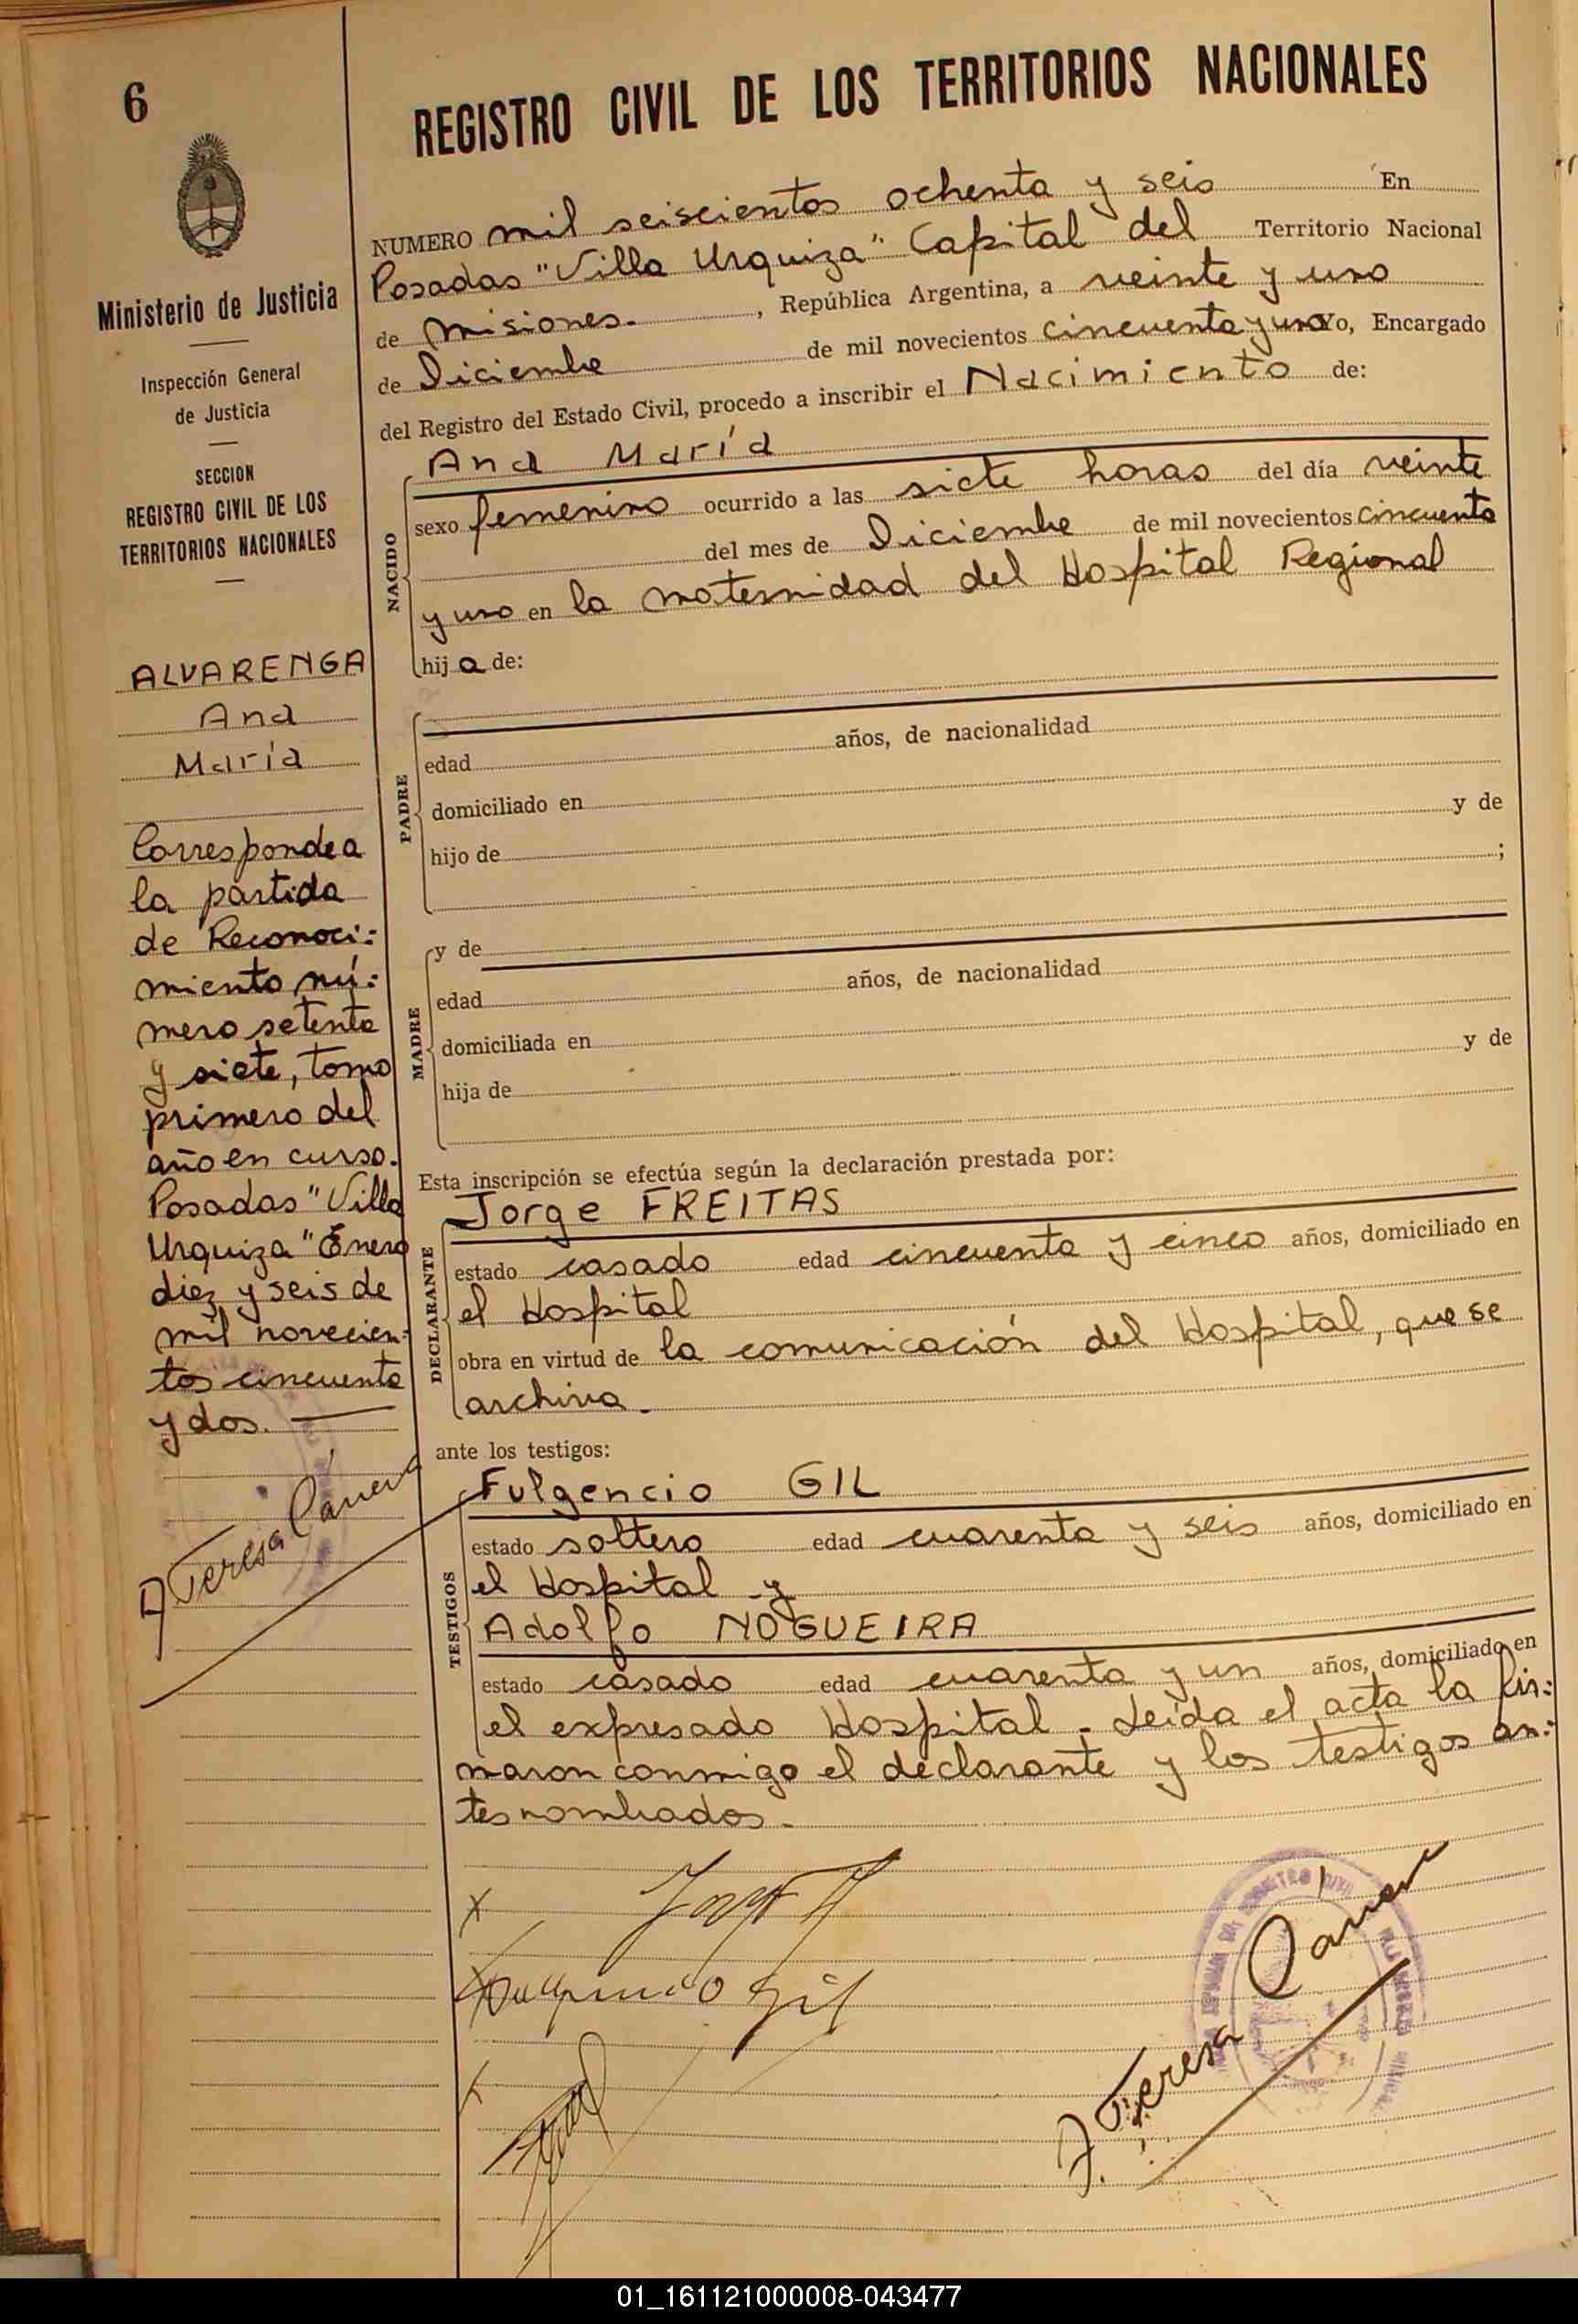 6
Ministerio de Justicia
Inspección General
de Justicia
SECCION
REGISTRO CIVIL DE LOS
TERRITORIOS NACIONALES
ALVARENGA
Ana
María
Corresponde a
la partida
de Reconoci=
miento nú=
mero setenta
y siete, tomo
primero del
año en curso.
Posadas "Villa
Urquiza" Enero
diez y seis de
mil novecien=
tos cincuenta
y dos.
Teresa
REGISTRO CIVIL DE LOS TERRITORIOS NACIONALES
NUMERO mil seiscientos ochenta y seis En
Posadas "Villa Urquiza" Capital del Territorio Nacional
de Misiones. , República Argentina, a veinte y uno
de Diciembre de mil novecientos cincuenta y uno Yo, Encargado
del Registro del Estado Civil, procedo a inscribir el Nacimiento de:
Ana María
NACIDO
sexo femenino ocurrido a las siete horas del día veinte
del mes de Diciembre de mil novecientos cincuenta
y uno en la maternidad del Hospital Regional
hij a de:
PADRE
edad años, de nacionalidad
domiciliado en
hijo de y de
;
MADRE
y de
edad años, de nacionalidad
domiciliada en
hija de y de
Esta inscripción se efectúa según la declaración prestada por:
DECLARANTE
Jorge FREITAS
estado casado edad cincuenta y cinco años, domiciliado en
el Hospital
obra en virtud de la comunicación del Hospital, que se
archiva.
ante los testigos:
TESTIGOS
Fulgencio GIL
estado soltero edad cuarenta y seis años, domiciliado en
el Hospital y
Adolfo NOGUEIRA
estado casado edad cuarenta y un años, domiciliado en
el expresado Hospital. Leida el acta la fir=
maron conmigo el declarante y los testigos an=
tes nombrados.
Gil
Teresa
01_161121000008-043477